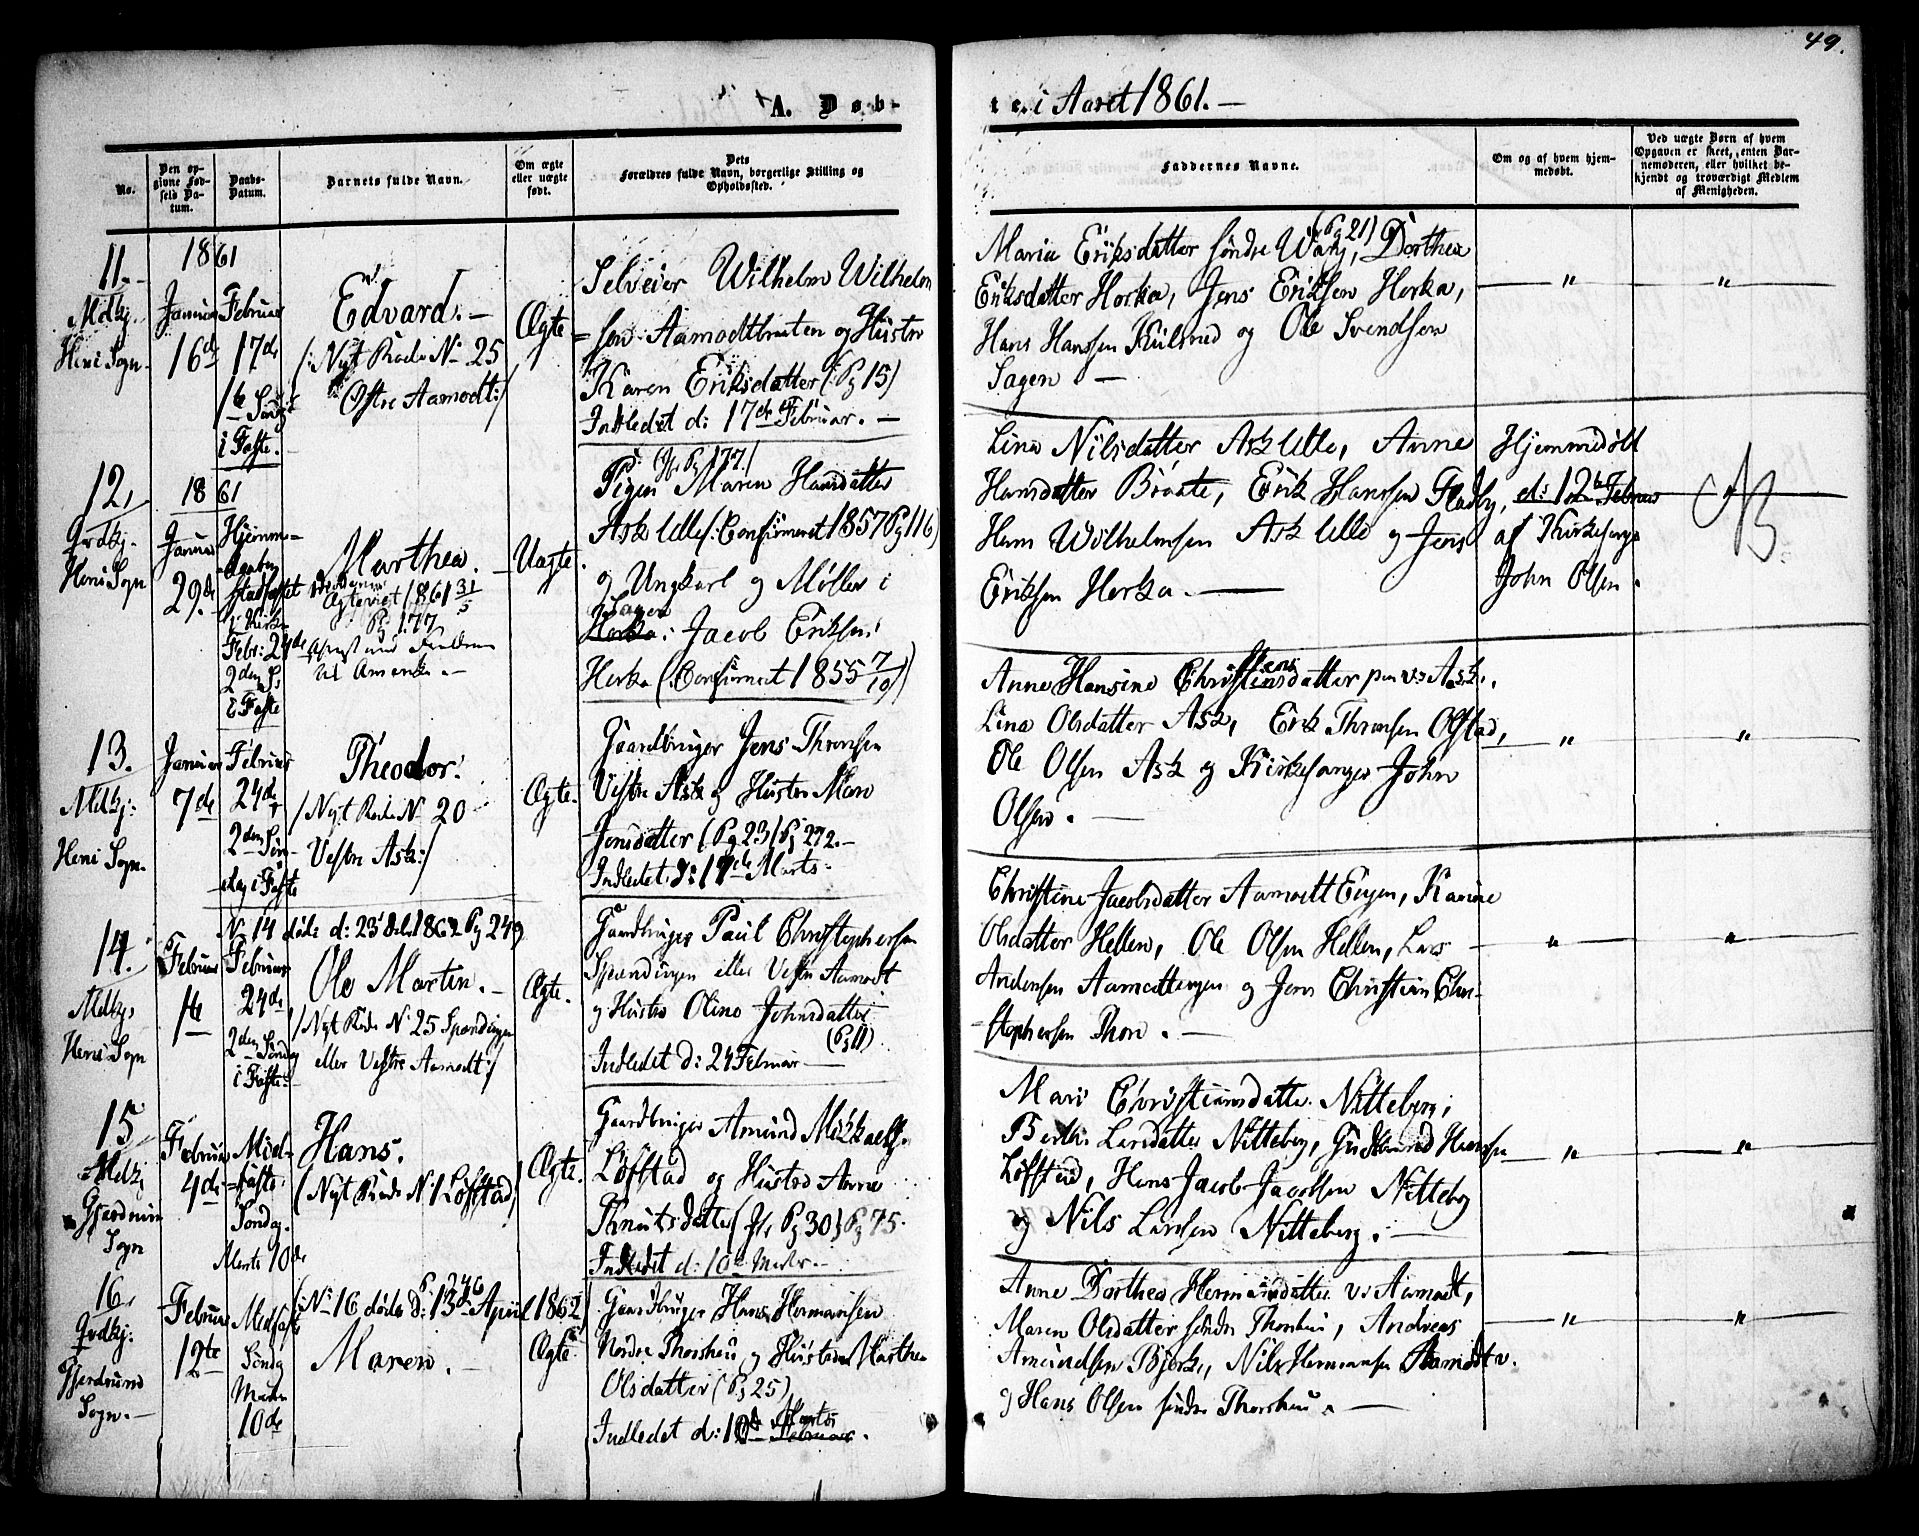 49.
A. Døb-
te i Aaret 1861.-
No.
Den op-
givne Fød-
sels Da-
tum.
Daabs-
Datum.
Barnets fulde Navn.
Om ægte
eller uægte
født.
Dets
Forældres fulde Navn, borgerlige Stilling og
Opholdssted.
Faddernes Navne.
Om og af hvem hjem-
medøbt.
Ved uægte Børn af hvem
Opgaven er skeet, enten Bar-
nemoderen, eller hvilket be-
kjendt og troværdigt Medlem
af Menigheden.
11.
Mdkj.
Heni Sogn.
1861
Januar
16de
Februar
17de
1te Søndg
i Faste.
Edvard.-
/: Nyt Rode No 25
Østre Aamodt:/
Ægte
Selveier Wilhelm Wilhelm
sen Aamodtbraten og Hustro
Karen Eriksdatter (Pg 15)
Indledet d: 17de Februar.-
Maria Eriksdatter søndre Wang, (Pg 21) Dorthea
Eriksdatter Horka, Jens Eriksen Horka,
Hans Hanssen Kulsrud og Ole Svendsen
Sagen -
"
"
12,
Qvdkj.
Heni Sogn
1861
Januar
29de
Hjemme-
daaben
stadfæstet
i Kirke
Febr: 24de
2den S:
i Faste
Marthea.-
Ægteviet 1861 31/5
Pg 177
til Amerika.-
Uægte
Jfr Pg 177./
Pigen Maren Hansdatter
Ask Ille (: Confirmeret 1857 Pg 116)
og Ungkarl og Møller i
Sagen
Horka: Jacob Eriksen
Horka (: Confirmeret 1855 7/10)
Lina Nilsdatter Ask Ille, Anne
Hansdatter Braate, Erik Hanssen Fladby,
Hans Wilhelmsen Ask Ille og Jens
Eriksen Horka.-
Hjemmedøbt
d: 12te Februar
af Kirkesanger
John Olsen.
13.
Mdkj:
Heni Sogn.
Januar
7de
Februar
24de
2den Søn-
dag i Faste
Theodor.
/ Nyt Rode No 20
Vestre Ask:/
Ægte.
Gaardbruger Jens Thronsen
Vestre Ask og Hustro Mari
Jensdatter (Pg 23) Pg 272.-
Indledet d: 17de Marts-
Anne Hansine Christensdatter v: Ask.
Lina Olsdatter Ask, Erik Thronsen Olstad,
Ole Olsen Ask og Kirkesanger John
Olsen.-
"
"
14.
Mdkj,
Heni Sogn
Februar
1te
No 14 døde d: 23de 1862 Pg 249
Februar
24de
2den Søndag
i Faste
Ole Martin.-
/ Nyt Rode No 25 Spondingen
eller Vestre Aamodt:/
Ægte.
Gaardbruger Paul Christophersen
Spondingen eller Vestre Aamodt
og Hustro Oline Johnsdatter
(Pg 11)
Indledet d: 24 Februar
Christine Jacobsdatter Aamodt Eigen, Karine
Olsdatter Hellen, Ole Olsen Hellen, Lars
Andersen Aamodteigen og Jens Christian Chri-
stophersen Thon.-
"
"
15
Mdkj
Gjerdrum
Sogn
Februar
4de
Mid-
faste
Søndag.
Marts 10de
Hans.
(Nyt Rode No 1 Løfstad)
Ægte.
Gaardbruger Amund Mikkaels
Løfstad og Hustro Anne
Knutsdatter (Jfr Pg 30) Pg 75.
Indledet d: 10de Marts.-
Mari Christiansdatter Nitteberg,
Berthe Larsdatter Nitteberg, Gudbrand Hansen
Løfstad, Hans Jacob Jacobsen Nitteberg
og Nils Larsen Nitteberg.-
"
"
16,
Qvdkj:
Gjerdrum
Sogn.-
Februar
12te
Midfaste
Søndg
Marts
10de
(No 16 døde d: 13de April 1862) Pg 246
Maren.-
Ægte
Gaardbruger Hans Hermansen
Nordre Thorshou og Hustro Marthea
Olsdatter (Pg 25)
Indledet d: 10de Marts Februar.
Anne Dorthea Hermansdatter v: Aamodt,
Maren Olsdatter søndre Thorshou, Andreas
Amundsen Bjerke, Nils Hermansen Aamodt v.
og Hans Olsen søndre Thorshou.-
"
"